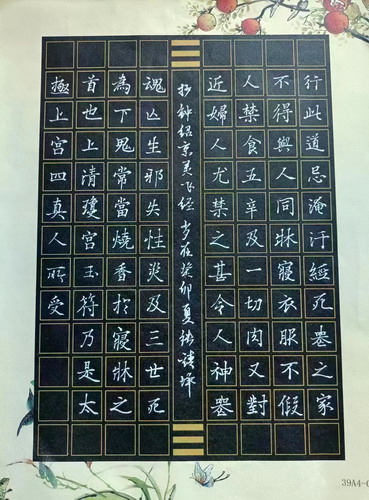 行此道忌淹汙經死喪之家
不得與人同牀寢衣服不假
人禁食五辛及一切肉又對
近婦人尤禁之甚令人神喪
抄钟绍京灵飞经 岁在癸卯夏
魂亡生邪失性災及三世死
為下鬼常當燒香於寢牀之
首也上清瓊宮玉符乃是太
極上宮四真人所受
39A4-